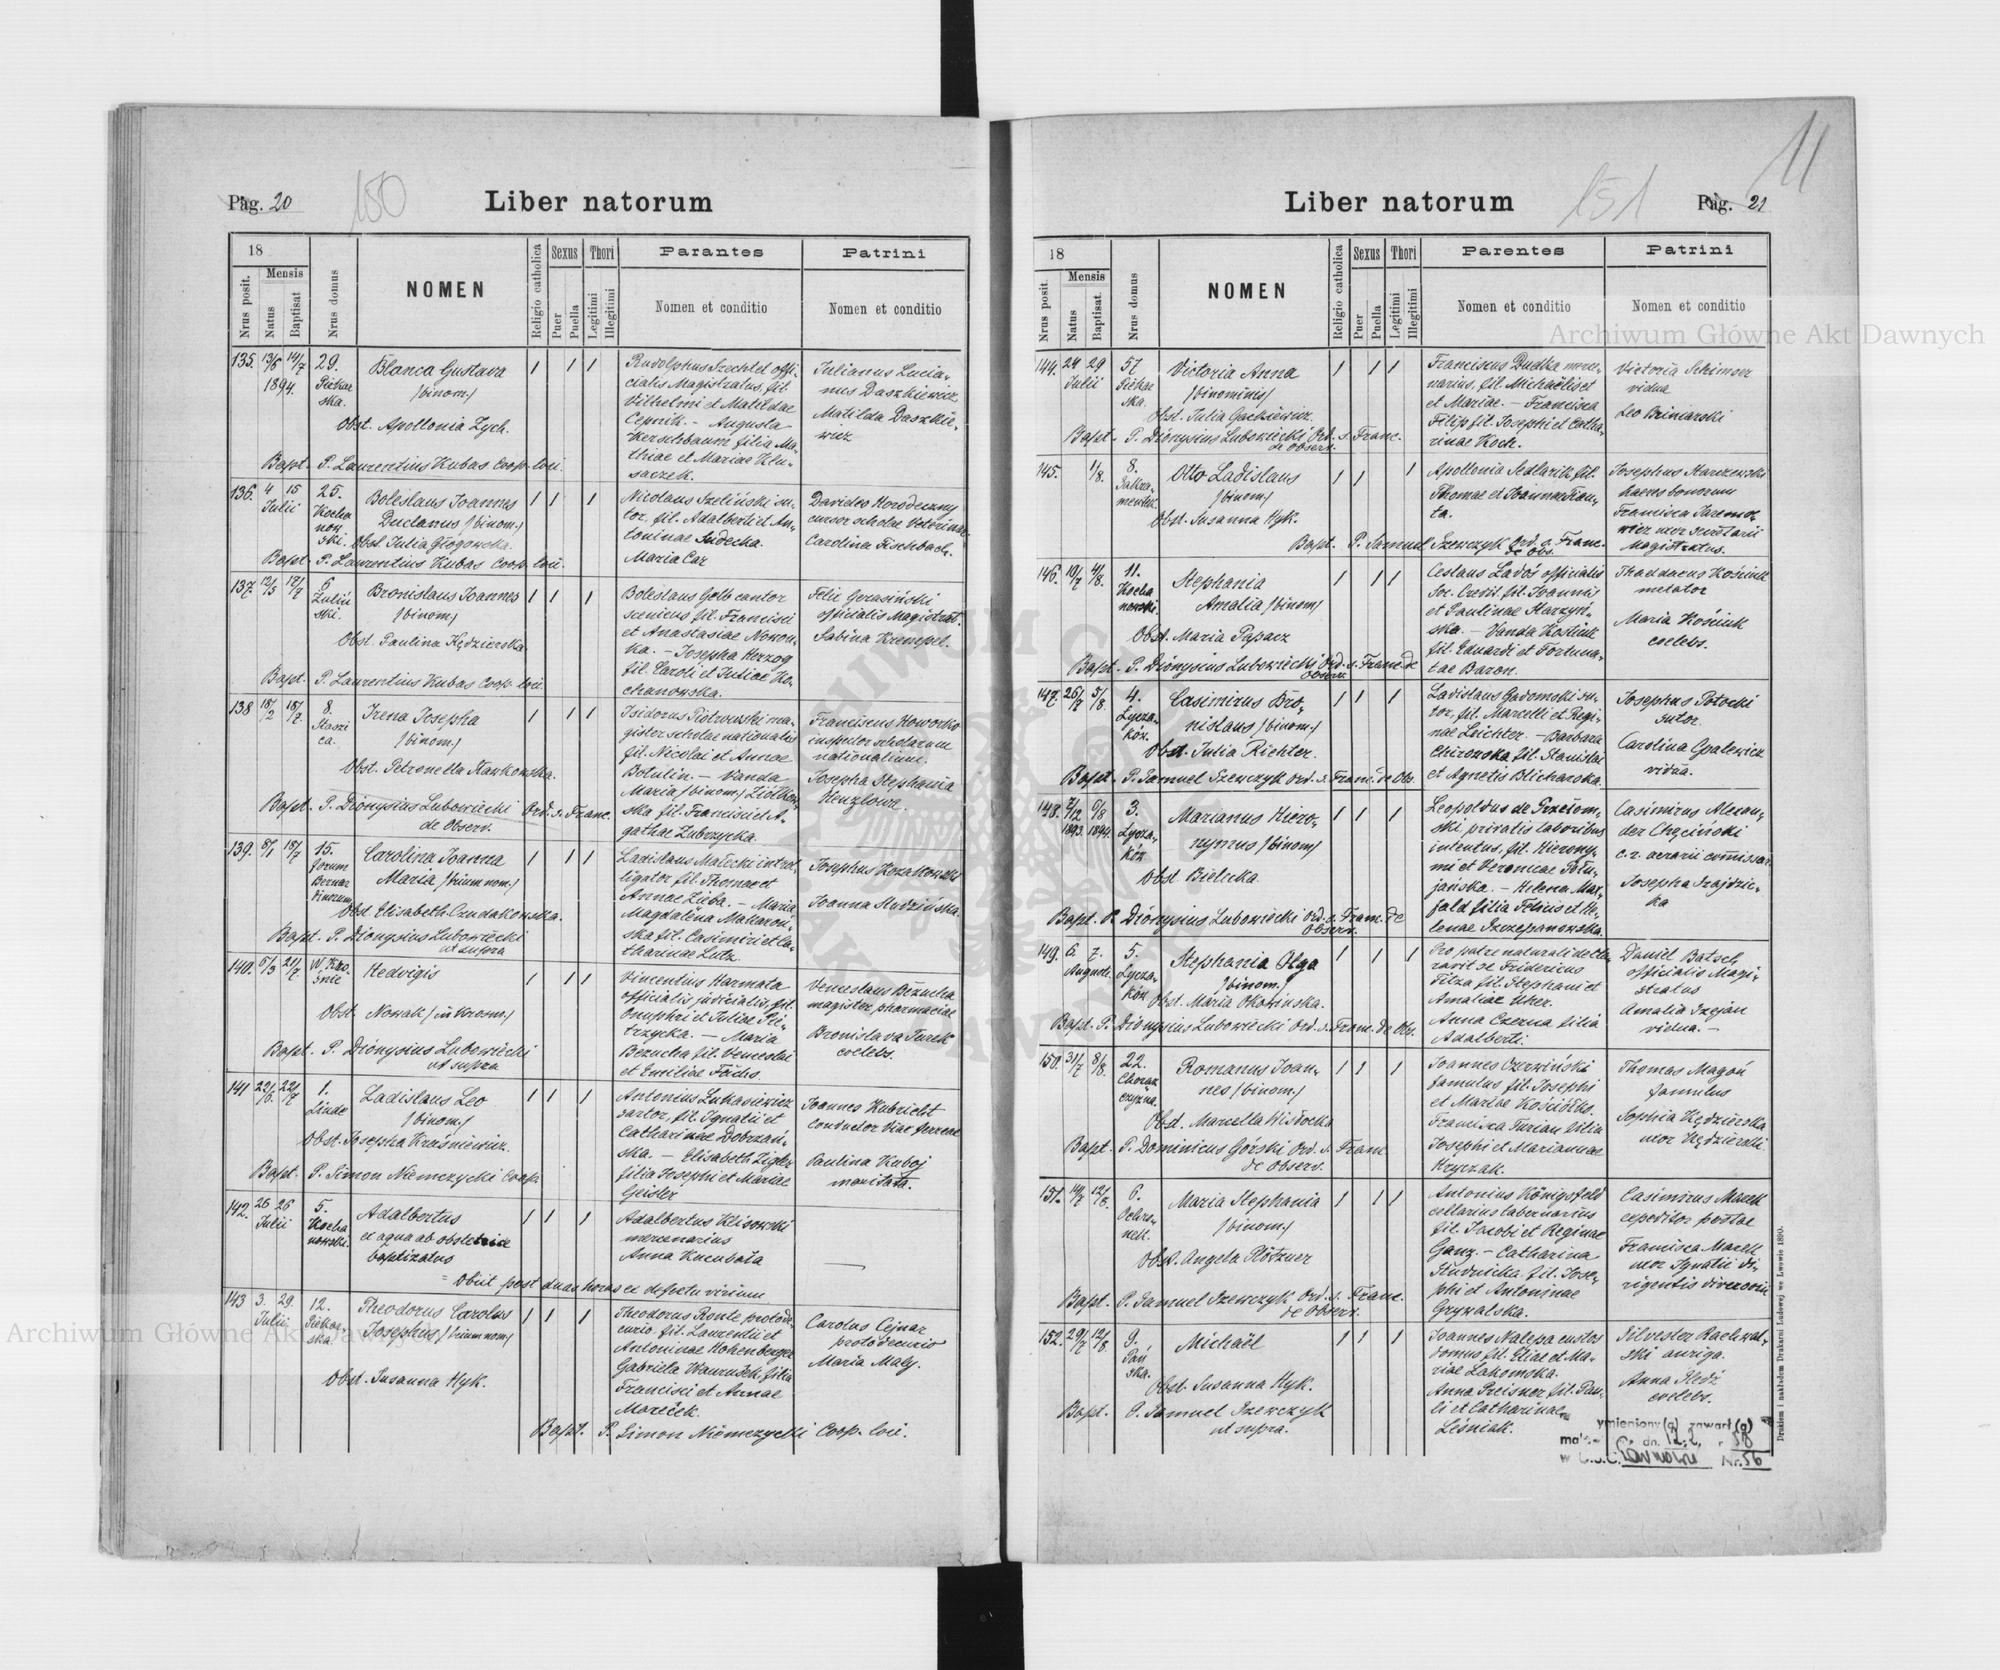 Pag. 20
150
Liber natorum
18
Mensis
Nrus posit.
Natus
Baptisat
Nrus domus
NOMEN
Religio catholica
Sexus
Puer
Puella
Thori
Legitimi
Illegitimi
Parantes
Nomen et conditio
Patrini
Nomen et conditio
135. 13/6 14/7 29.
1894. Piekar
ska.
Blanca Gustava
/binom./
Obst. Apollonia Zych.
Bapt. P. Laurentius Kubas Coop. loci.
Rudolphus Frechtel offi-
cialis Magistratus, fil.
Vilhelmi et Matildae
Cepnik. - Augusta
Kerschbaum filia Ma-
thiae et Mariae Klu-
saczek.
Julianus Lucia-
nus Daszkiewicz
Matilda Daszkie-
wicz
136. 4 15 25.
Julii Kocha
now
ski.
Boleslaus Joannes
Duclanus /binom./
Obst. Julia Głogowska.
Bapt. P. Laurentius Kubas Coop. loci.
Nicolaus Szeliński su-
tor, fil. Adalberti et An-
toninae Sudecka.
Maria Car
Davides Horodeczny
cursor scholae Veterinar.
Carolina Fischbach.
137. 12/5 17/7 6
Zuliń
ski.
Bronislaus Joannes
/binom./
Obst. Paulina Kędzierska
Bapt. P. Laurentius Kubas Coop. loci
Boleslaus Golb cantor
scenicus fil. Francisci
et Anastasiae Nowon-
ka. - Josepha Herzog
fil. Caroli et Juliae Ko-
chanowska.
Felix Gerasiński
officialis Magistrat.
Sabina Krempel.
138 18/2 18/7. 8.
Staszi
ca.
Irena Josepha
/binom./
Obst. Petronella Kawkowska.
Bapt. P. Dionysius Lubowiecki Ord. s. Franc.
de Observ.
Isidorus Piotrowski ma-
gister scholae nationalis
fil. Nicolai et Annae
Botulin. - Vanda
Maria /binom./ Ziółkow-
ska fil. Francisci et A-
gathae Zubrzycka.
Franciscus Noworko
inspector scholarum
nationalium.
Josepha Stephania
Wenzlowa.
139. 8/1 18/7 15.
forum
Bernar
dinorum
Carolina Joanna
Maria /trium nom./
Obst. Elisabeth Czudakowska.
Bapt. P. Dionysius Lubowiecki
ut supra
Ladislaus Małecki introl-
ligator fil. Thomae et
Annae Zięba. - Maria
Magdalena Makaroń-
ska fil. Casimiri et Ca-
tharinae Lutz.
Josephus Kozakowski
Joanna Hudzińska.
140. 5/3 21/7 W Kro-
śnie
Hedvigis
Obst. Nowak / in Krosno./
Bapt. P. Dionysius Lubowiecki
ut supra
Vincentius Harmata
officialis judicialis, fil.
Onuphri et Juliae Pie-
trzycka. - Maria
Bezucha fil. Venceslai
et Emiliae Fuchs.
Venceslaus Bezucha
magister pharmaciae
Bronislava Turek
coelebs.
141 22/6. 22/7 1.
Linde
Ladislaus Leo
/binom./
Obst. Josepha Krasniewicz.
Bapt. P. Simon Niemczycki Coop.
Antonius Lukasiewicz
sartor, fil. Ignatii et
Catharinae Dobrzań-
ska. - Elisabeth Zigler
filia Josephi et Mariae
Geisler
Joannes Kubricht
conductor viae ferreae
Paulina Kuboj
maritata.
142. 26 26 5.
Julii Kocha
nowski.
Adalbertus
ex aqua ab obstetrice
baptizatus
= Obiit post duas horas ex defectu virium
Adalbertus Klisowski
mercenarius
Anna Kucubata
143 3. 29. 12.
Julii. Piekar-
ska.
Theodorus Carolus
Josephus /trium nom./
Obst. Susanna Hyk.
Bapt. P. Simon Niemczycki Coop. loci.
Theodorus Ronte protode-
curio. fil. Laurentii et
Antoninae Hohenberger
Gabriela Wawrušek filia
Francisci et Annae
Mareček.
Carolus Cejnar
protodecurio
Maria Maly.
11
151
Liber natorum
Pag. 21
18
Mensis
Nrus posit.
Natus
Baptisat.
Nrus domus
NOMEN
Religio catholica
Sexus
Puer
Puella
Thori
Legitimi
Illegitimi
Parentes
Nomen et conditio
Patrini
Nomen et conditio
144. 24 29 57
Julii Piekar
ska.
Victoria Anna
/binominis/
Obst. Julia Gackiewicz
Bapt. P. Dionysius Lubowiecki Ord. s. Franc.
de Observ.
Franciscus Dudka merce-
narius, fil. Michaëlis et
et Mariae. - Francisca
Filip fil. Josephi et Catha-
rinae Koch.
Victoria Schimser
vidua
Leo Briniarski
145. 1/8. 8.
Sakra-
mentek.
Otto Ladislaus
/binom/
Obst. Susanna Hyk.
Bapt. P. Samuel Szewczyk Ord. s. Franc.
de Obs.
Apollonia Sedlarik fil.
Thomae et Joannae Pion-
ta.
Josephus Harczewski
haeres bonorum
Francisca Jaremo-
wicz uxor scultarii
Magistratus.
146. 10/7 4/8. 11.
Kocha
nowski.
Stephania
Amalia /binom/
Obst. Maria Papacz
Bapt. P. Dionysius Lubowiecki Ord. s. Franc. de
Observ.
Ceslaus Ladoś officialis
Soc. Credit. fil. Joannis
et Paulinae Starzyń-
ska. - Vanda Kostiuk
fil. Eduardi et Fortuna-
tae Baron.
Thaddaeus Kościuk
metator
Maria Kościuk
coelebs.
147. 26/7 5/8. 4.
Łycza-
ków.
Casimirus Bro-
nislaus /binom./
Obst. Julia Richter.
Bapt. P. Samuel Szewczyk Ord. s. Franc. de Obs.
Ladislaus Gadomski su-
tor, fil. Marcelli et Regi-
nae Leichter. - Barbara
Chirowska fil. Stanislai
et Agnetis Blicharska.
Josephus Potocki
sutor.
Carolina Gralewicz
vidua.
148. 7/12 6/8 3.
1893. 1894. Łycza-
ków
Marianus Hiero-
nymus /binom/
Obst. Bielecka.
Bapt. P. Dionysius Lubowiecki Ord. s. Franc. de
Observ.
Leopoldus de Przełom-
ski privatis laboribus
intentus, fil. Hierony-
mi et Veronicae Potu-
jańska. - Helena Max-
fald filia Felicis et He-
lenae Szczepanowska.
Casimirus Alexan-
der Chęciński
c. r. aerarii commissar.
Josepha Krajdzic-
ka
149. 6. 7. 5.
Augusti. Łycza-
ków
Stephania Olga
/binom./
Obst. Maria Okołinska.
Bapt. P. Dionysius Lubowiecki Ord. s. Franc. de Obs.
Pro patre naturali decla-
ravit se Fridericus
Pitza fil. Stephani et
Amaliae Uher.
Anna Czerna filia
Adalberti.
Daniel Batsch
officialis Magi-
stratus
Amalia Szejan
vidua. -
150. 31/7 8/8. 22.
Chorąż
czyzna.
Romanus Joan-
nes /binom./
Obst. Marcella Wisłocka
Bapt. P. Dominicus Górski Ord. s. Franc.
de Observ.
Joannes Czerwiński
famulus fil. Josephi
et Mariae Kościółko.
Francisca Furian filia
Josephi et Mariannae
Kryczak.
Thomas Magoń
famulus
Sophia Kędzierska
uxor Kędzierski.
151. 14/7 12/8. 6.
Ochro-
nek.
Maria Stephania
/binom./
Obst. Angela Plötzner
Bapt. P. Samuel Szewczyk Ord. s. Franc.
de Observ.
Antonius Königsfeld
cellarius tabernarius
fil. Jacobi et Reginae
Ganz. - Catharina
Studnicka fil. Jose-
phi et Antoninae
Grywalska.
Casimirus Marek
expeditor postae
Francisca Marek
uxor Ignatii di-
rigentis diversorii
152. 29/7 12/8. 9.
Pań
ska.
Michaël
Obst. Susanna Hyk.
Bapt. P. Samuel Szewczyk
ut supra.
Joannes Nalepa custos
domus fil. Eliae et Ma-
riae Lakomska.
Anna Preisner fil. Pau-
li et Catharinae
Leśniak.
Silvester Raclewal-
ski auriga.
Anna Śledź
coelebs.
ymieniony(a) zawarł(a)
dn. 12.2. 58
Tarnowie Nr. 56
Drukiem i nakładem Drukarni Ludowej we Lwowie 1890.
Archiwum Główne Akt Dawnych
Archiwum Główne Akt Dawnych